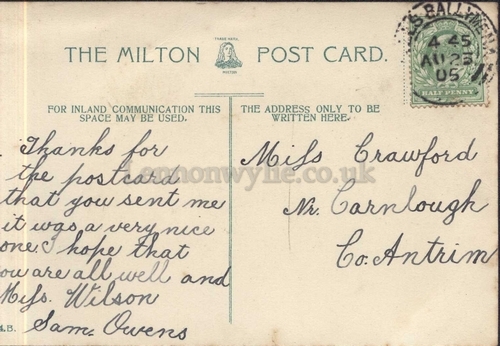 TRADE MARK
MILTON
THE MILTON POST CARD.
4 45
AU 23
05
HALF PENNY
FOR INLAND COMMUNICATION THIS
SPACE MAY BE USED.
THE ADDRESS ONLY TO BE
WRITTEN HERE.
Thanks for
the postcard
that you sent me
it was a very nice
one. I hope that
you are all well and
Miss. Wilson
Sam. Owens
Miss Crawford
Nr. Carnlough
Co. Antrim
Lennonwylie.co.uk